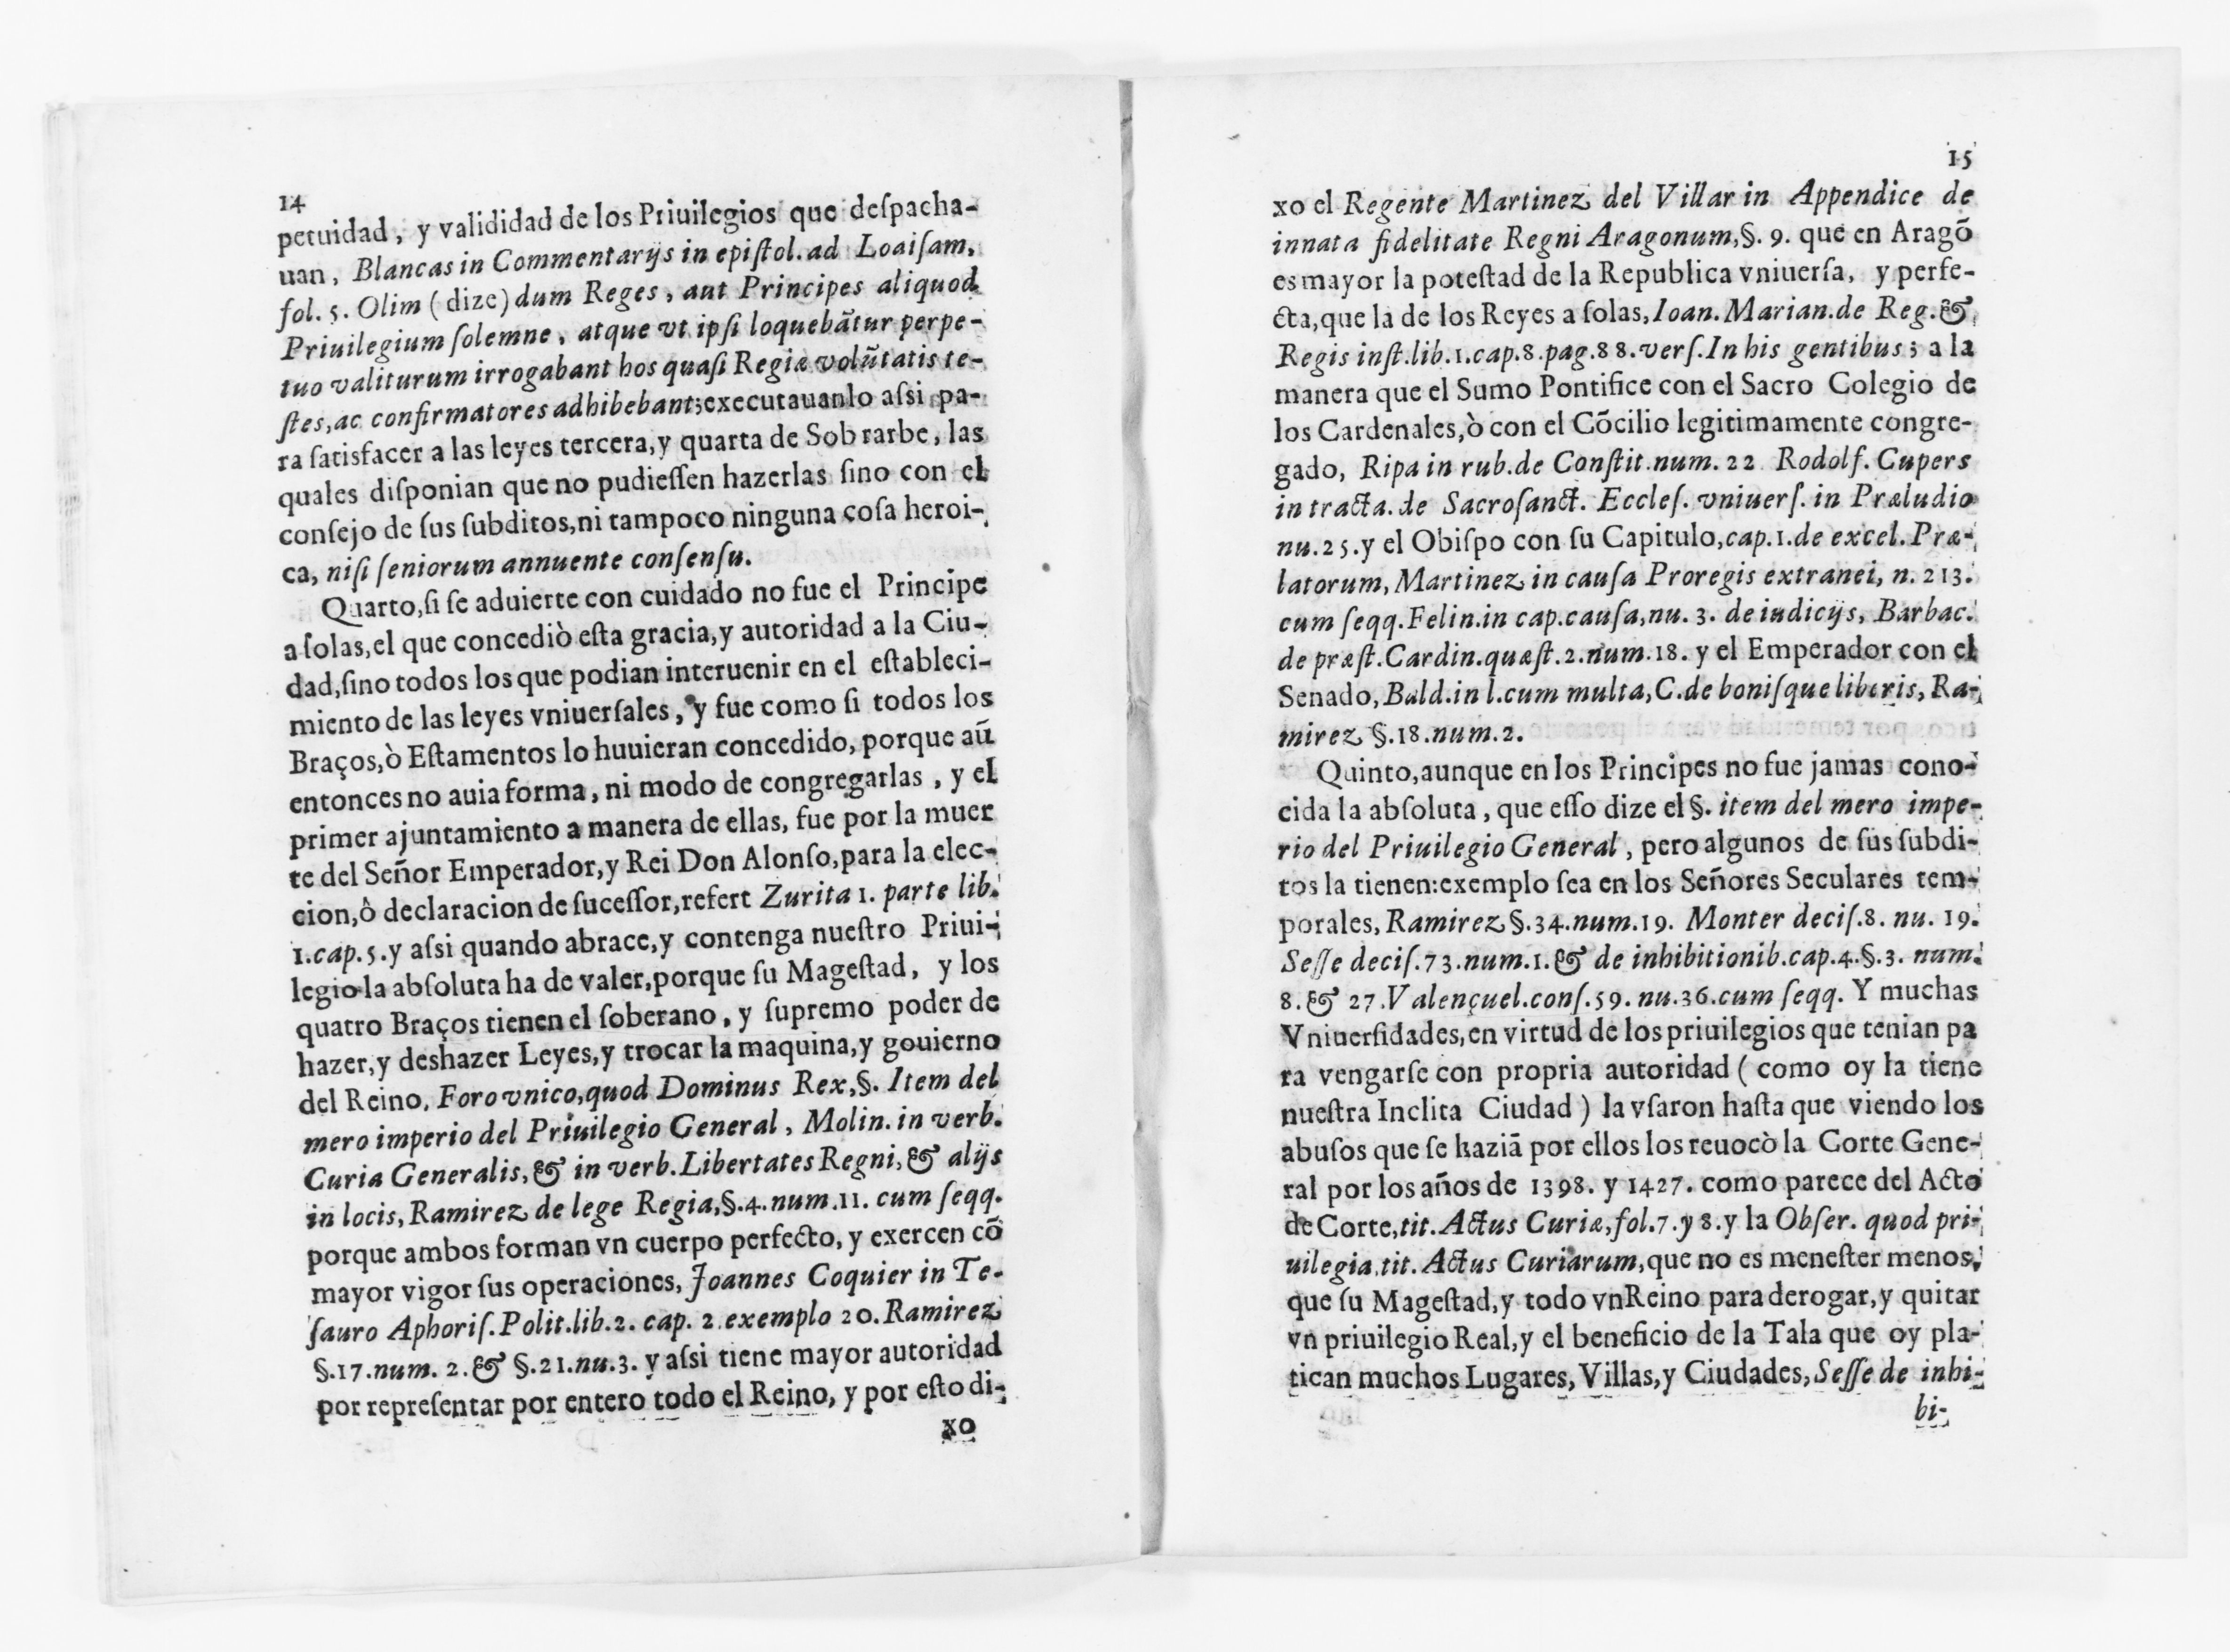 14
petuidad, y valididad de los Priuilegios que deſpacha-
uan, Blancas in Commentarijs in epiſtol. ad Loaiſam,
fol. 5. Olim (dize) dum Reges, aut Principes aliquod
Priuilegium ſolemne, atque vt ipſi loquebãtur perpe-
tuo valiturum irrogabant hos quaſi Regiæ volũtatis te-
ſtes, ac confirmatores adhibebant; executauanlo aſsi pa-
ra ſatisfacer a las leyes tercera, y quarta de Sobrarbe, las
quales diſponian que no pudieſſen hazerlas ſino con el
conſejo de ſus ſubditos, ni tampoco ninguna coſa heroi-
ca, niſi ſeniorum annuente conſenſu.
Quarto, ſi ſe aduierte con cuidado no fue el Principe
a ſolas, el que concediò eſta gracia, y autoridad a la Ciu-
dad, ſino todos los que podian interuenir en el eſtableci-
miento de las leyes vniuerſales, y fue como ſi todos los
Braços, ò Eſtamentos lo huuieran concedido, porque aũ
entonces no auia forma, ni modo de congregarlas, y el
primer ajuntamiento a manera de ellas, fue por la muer
te del Señor Emperador, y Rei Don Alonſo, para la elec-
cion, ô declaracion de ſuceſſor, refert Zurita 1. parte lib.
1. cap. 5. y aſsi quando abrace, y contenga nueſtro Priui-
legio la abſoluta ha de valer, porque ſu Mageſtad, y los
quatro Braços tienen el ſoberano, y ſupremo poder de
hazer, y deshazer Leyes, y trocar la maquina, y gouierno
del Reino, Foro vnico, quod Dominus Rex, §. Item del
mero imperio del Priuilegio General, Molin. in verb.
Curia Generalis, & in verb. Libertates Regni, & alijs
in locis, Ramirez de lege Regia, §. 4. num. 11. cum ſeqq.
porque ambos forman vn cuerpo perfecto, y exercen cõ
mayor vigor ſus operaciones, Joannes Coquier in Te-
ſauro Aphoriſ. Polit. lib. 2. cap. 2. exemplo 20. Ramirez
§. 17. num. 2. & §. 21. nu. 3. y aſsi tiene mayor autoridad
por repreſentar por entero todo el Reino, y por eſto di-
xo
15
xo el Regente Martinez del Villar in Appendice de
innata fidelitate Regni Aragonum, §. 9. que en Aragõ
es mayor la poteſtad de la Republica vniuerſa, y perfe-
cta, que la de los Reyes a ſolas, Ioan. Marian. de Reg. &
Regis inſt. lib. 1. cap. 8. pag. 88. verſ. In his gentibus; a la
manera que el Sumo Pontifice con el Sacro Colegio de
los Cardenales, ò con el Cõcilio legitimamente congre-
gado, Ripa in rub. de Conſtit. num. 22 Rodolf. Cupers
in tracta. de Sacroſanct. Eccleſ. vniuerſ. in Præludio
nu. 25. y el Obiſpo con ſu Capitulo, cap. 1. de excel. Præ-
latorum, Martinez in cauſa Proregis extranei, n. 213.
cum ſeqq. Felin. in cap. cauſa, nu. 3. de iudicijs, Barbac.
de præſt. Cardin. quæſt. 2. num. 18. y el Emperador con el
Senado, Bald. in l. cum multa, C. de boniſque liberis, Ra-
mirez §. 18. num. 2.
Quinto, aunque en los Principes no fue jamas cono-
cida la abſoluta, que eſſo dize el §. item del mero impe-
rio del Priuilegio General, pero algunos de ſus ſubdi-
tos la tienen: exemplo ſea en los Señores Seculares tem-
porales, Ramirez §. 34. num. 19. Monter deciſ. 8. nu. 19.
Seſſe deciſ. 73. num. 1. & de inhibitionib. cap. 4. §. 3. num.
8. & 27. Valençuel. conſ. 59. nu. 36. cum ſeqq. Y muchas
Vniuerſidades, en virtud de los priuilegios que tenian pa
ra vengarſe con propria autoridad (como oy la tiene
nueſtra Inclita Ciudad) la vſaron haſta que viendo los
abuſos que ſe haziã por ellos los reuocò la Corte Gene-
ral por los años de 1398. y 1427. como parece del Acto
de Corte, tit. Actus Curiæ, fol. 7. y 8. y la Obſer. quod pri-
uilegia, tit. Actus Curiarum, que no es meneſter menos,
que ſu Mageſtad, y todo vn Reino para derogar, y quitar
vn priuilegio Real, y el beneficio de la Tala que oy pla-
tican muchos Lugares, Villas, y Ciudades, Seſſe de inhi-
bi-